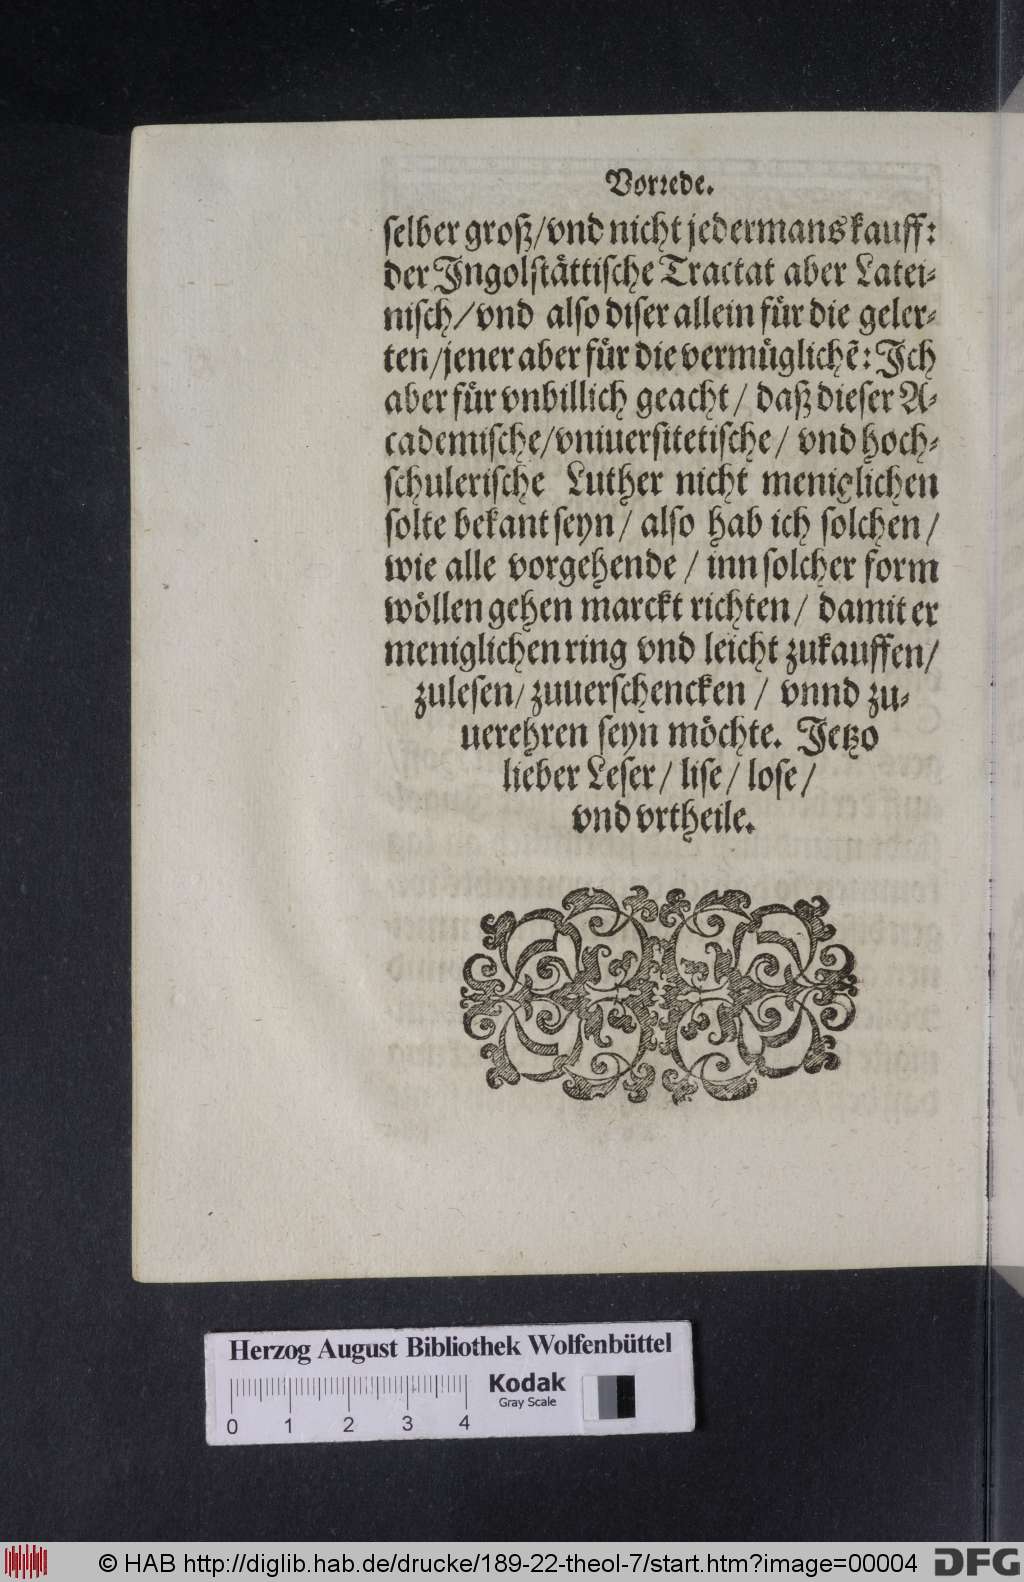 Vorrede.
selber groß/vnd nicht jedermans kauff:
der Jngolstättische Tractat aber Latei-
nisch/vnd also diser allein für die geler-
ten/jener aber für die vermüglichẽ: Jch
aber für vnbillich geacht/ daß dieser A-
cademische/vniuersitetische/ vnd hoch-
schulerische Luther nicht meniglichen
solte bekant seyn/ also hab ich solchen/
wie alle vorgehende/ inn solcher form
wöllen gehen marckt richten/ damit er
meniglichen ring vnd leicht zukauffen/
zulesen/ zuuerschencken/ vnnd zu-
uerehren seyn möchte. Jetzo
lieber Leser/ lise/ lose/
vnd vrtheile.
Herzog August Bibliothek Wolfenbüttel
Kodak
Gray Scale
0 1 2 3 4
© HAB http://diglib.hab.de/drucke/189-22-theol-7/start.htm?image=00004
DFG